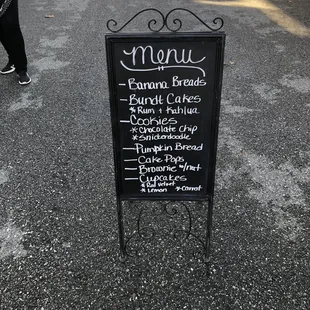 Menu
- Banana Breads
- Bundt Cakes
* Rum + Kahlua
- Cookies
* Chocolate Chip
* Snickerdoodle
- Pumpkin Bread
- Cake Pops
- Brownie w/nut
- Cupcakes
* Red Velvet
* Lemon * Carrot